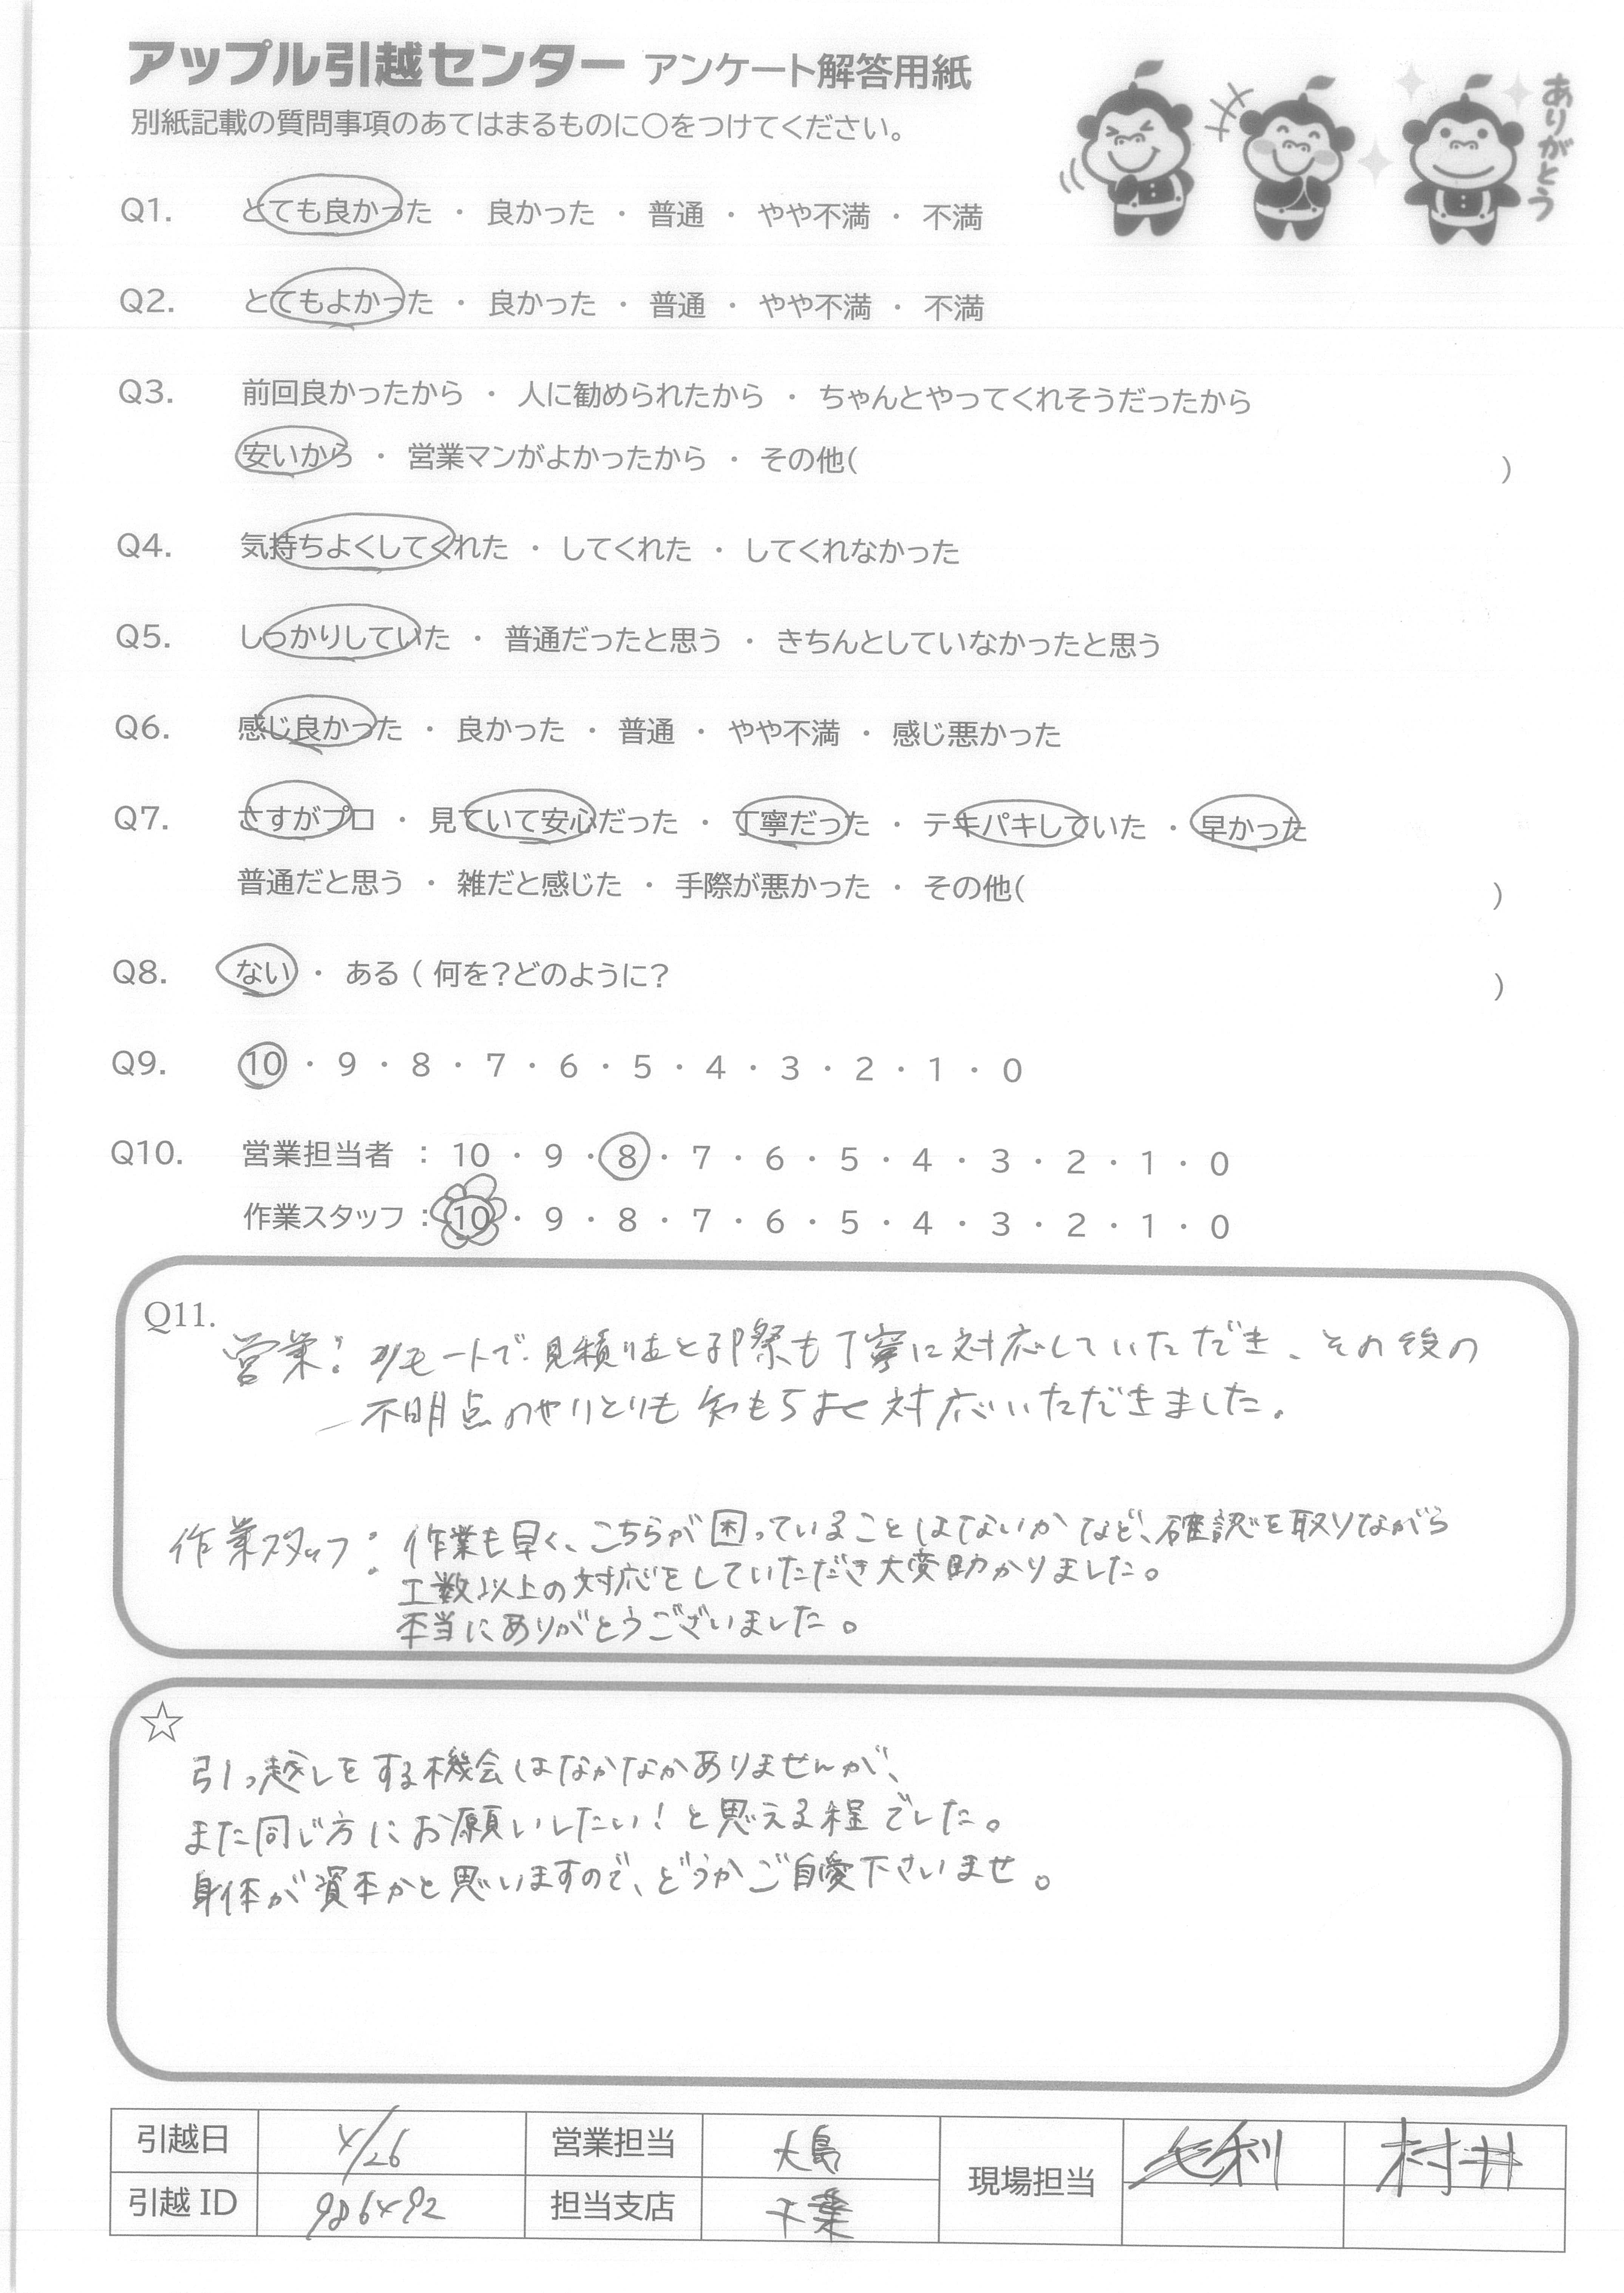 アップル引越センター アンケート解答用紙
別紙記載の質問事項のあてはまるものに○をつけてください。
ありがとう
Q1. とても良かった ・ 良かった ・ 普通 ・ やや不満 ・ 不満
Q2. とてもよかった ・ 良かった ・ 普通 ・ やや不満 ・ 不満
Q3. 前回良かったから ・ 人に勧められたから ・ ちゃんとやってくれそうだったから
安いから ・ 営業マンがよかったから ・ その他( )
Q4. 気持ちよくしてくれた ・ してくれた ・ してくれなかった
Q5. しっかりしていた ・ 普通だったと思う ・ きちんとしていなかったと思う
Q6. 感じ良かった ・ 良かった ・ 普通 ・ やや不満 ・ 感じ悪かった
Q7. さすがプロ ・ 見ていて安心だった ・ 丁寧だった ・ テキパキしていた ・ 早かった
普通だと思う ・ 雑だと感じた ・ 手際が悪かった ・ その他( )
Q8. ない ・ ある ( 何を?どのように? )
Q9. 10 ・ 9 ・ 8 ・ 7 ・ 6 ・ 5 ・ 4 ・ 3 ・ 2 ・ 1 ・ 0
Q10. 営業担当者 : 10 ・ 9 ・ 8 ・ 7 ・ 6 ・ 5 ・ 4 ・ 3 ・ 2 ・ 1 ・ 0
作業スタッフ : 10 ・ 9 ・ 8 ・ 7 ・ 6 ・ 5 ・ 4 ・ 3 ・ 2 ・ 1 ・ 0
Q11.
営業: リモートで見積りをとる際も丁寧に対応していただき、その後の
不明点のやりとりも気もちよく対応いただきました。
作業スタッフ: 作業も早く、こちらが困っていることはないかなど、確認を取りながら
工数以上の対応をしていただき大変助かりました。
本当にありがとうございました。
☆
引っ越しをする機会はなかなかありませんが、
また同じ方にお願いしたい!と思える程でした。
身体が資本かと思いますので、どうかご自愛下さいませ。
引越日 4/26 営業担当 大島 現場担当 毛利 村井
引越 ID 986492 担当支店 千葉